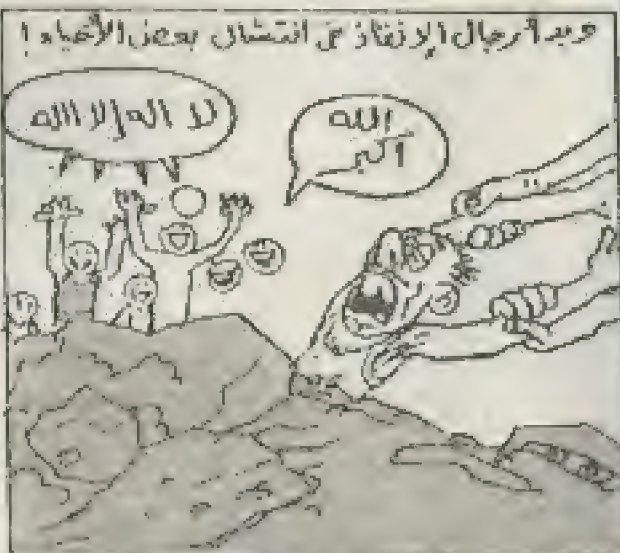 وبدأ رجال الإنقاذ في انتشال بعض الأحياء !
لا اله إلا الله
الله
أكبر